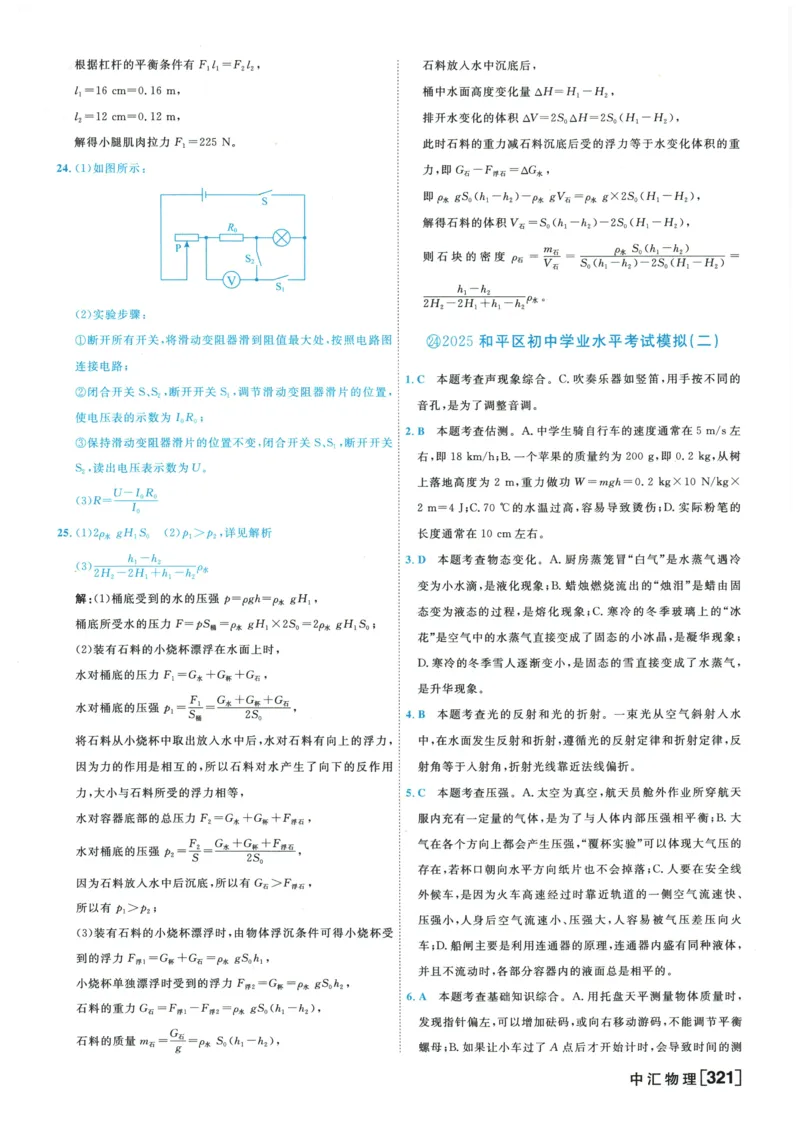 根据杠杆的平衡条件有 F₁l₁=F₂l₂，
l₁=16 cm=0.16 m，
l₂=12 cm=0.12 m，
解得小腿肌肉拉力 F₁=225 N。
24. (1)如图所示：
S
R₀
P
S₂
V
S₁
(2)实验步骤：
①断开所有开关,将滑动变阻器滑到阻值最大处,按照电路图
连接电路；
②闭合开关 S、S₂,断开开关 S₁,调节滑动变阻器滑片的位置,
使电压表的示数为 I₀R₀；
③保持滑动变阻器滑片的位置不变,闭合开关 S、S₁,断开开关
S₂,读出电压表示数为 U。
(3)R=(U-I₀R₀)/I₀
25. (1)2ρ水 gH₁S₀ (2)p₁>p₂,详见解析
(3)(h₁-h₂)/(2H₂-2H₁+h₁-h₂)ρ水
解:(1)桶底受到的水的压强 p=ρgh=ρ水 gH₁，
桶底所受水的压力 F=pS桶=ρ水 gH₁×2S₀=2ρ水 gH₁S₀；
(2)装有石料的小烧杯漂浮在水面上时，
水对桶底的压力 F₁=G水+G杯+G石，
水对桶底的压强 p₁=F₁/S桶=(G水+G杯+G石)/2S₀，
将石料从小烧杯中取出放入水中后,水对石料有向上的浮力,
因为力的作用是相互的,所以石料对水产生了向下的反作用
力,大小与石料所受的浮力相等,
水对容器底部的总压力 F₂=G水+G杯+F浮石，
水对桶底的压强 p₂=F₂/S=(G水+G杯+F浮石)/2S₀，
因为石料放入水中后沉底,所以有 G石>F浮石，
所以有 p₁>p₂；
(3)装有石料的小烧杯漂浮时,由物体浮沉条件可得小烧杯受
到的浮力 F浮1=G杯+G石=ρ水 gS₀h₁，
小烧杯单独漂浮时受到的浮力 F浮2=G杯=ρ水 gS₀h₂，
石料的重力 G石=F浮1-F浮2=ρ水 gS₀(h₁-h₂)，
石料的质量 m石=G石/g=ρ水 S₀(h₁-h₂)，
石料放入水中沉底后，
桶中水面高度变化量 ΔH=H₁-H₂，
排开水变化的体积 ΔV=2S₀ΔH=2S₀(H₁-H₂)，
此时石料的重力减石料沉底后受的浮力等于水变化体积的重
力,即 G石-F浮石=ΔG水，
即 ρ水 gS₀(h₁-h₂)-ρ水 gV石=ρ水 g×2S₀(H₁-H₂)，
解得石料的体积 V石=S₀(h₁-h₂)-2S₀(H₁-H₂)，
则石块的密度 ρ石=m石/V石=ρ水 S₀(h₁-h₂)/(S₀(h₁-h₂)-2S₀(H₁-H₂))=
(h₁-h₂)/(2H₂-2H₁+h₁-h₂)ρ水。
㉔2025 和平区初中学业水平考试模拟(二)
1. C 本题考查声现象综合。C. 吹奏乐器如竖笛,用手按不同的
音孔,是为了调整音调。
2. B 本题考查估测。A. 中学生骑自行车的速度通常在 5 m/s 左
右,即 18 km/h;B. 一个苹果的质量约为 200 g,即 0.2 kg,从树
上落地高度为 2 m,重力做功 W=mgh=0.2 kg×10 N/kg×
2 m=4 J;C. 70 ℃的水温过高,容易导致烫伤;D. 实际粉笔的
长度通常在 10 cm 左右。
3. D 本题考查物态变化。A. 厨房蒸笼冒“白气”是水蒸气遇冷
变为小水滴,是液化现象;B. 蜡烛燃烧流出的“烛泪”是蜡由固
态变为液态的过程,是熔化现象;C. 寒冷的冬季玻璃上的“冰
花”是空气中的水蒸气直接变成了固态的小冰晶,是凝华现象;
D. 寒冷的冬季雪人逐渐变小,是固态的雪直接变成了水蒸气,
是升华现象。
4. B 本题考查光的反射和光的折射。一束光从空气斜射入水
中,在水面发生反射和折射,遵循光的反射定律和折射定律,反
射角等于入射角,折射光线靠近法线偏折。
5. C 本题考查压强。A. 太空为真空,航天员舱外作业所穿航天
服内充有一定量的气体,是为了与人体内部压强相平衡;B. 大
气在各个方向上都会产生压强,“覆杯实验”可以体现大气压的
存在,若杯口朝向水平方向纸片也不会掉落;C. 人要在安全线
外候车,是因为火车高速经过时靠近轨道的一侧空气流速快、
压强小,人身后空气流速小、压强大,人容易被气压差压向火
车;D. 船闸主要是利用连通器的原理,连通器内盛有同种液体,
并且不流动时,各部分容器内的液面总是相平的。
6. A 本题考查基础知识综合。A. 用托盘天平测量物体质量时,
发现指针偏左,可以增加砝码,或向右移动游码,不能调节平衡
螺母;B. 如果让小车过了 A 点后才开始计时,会导致时间的测
中汇物理[321]